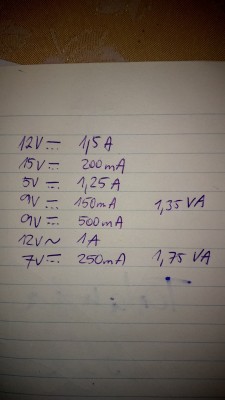 12V⎓ 1,5A
15V⎓ 200mA
5V⎓ 1,25A
9V⎓ 150mA 1,35 VA
9V⎓ 500mA
12V~ 1A
7V⎓ 250mA 1,75 VA